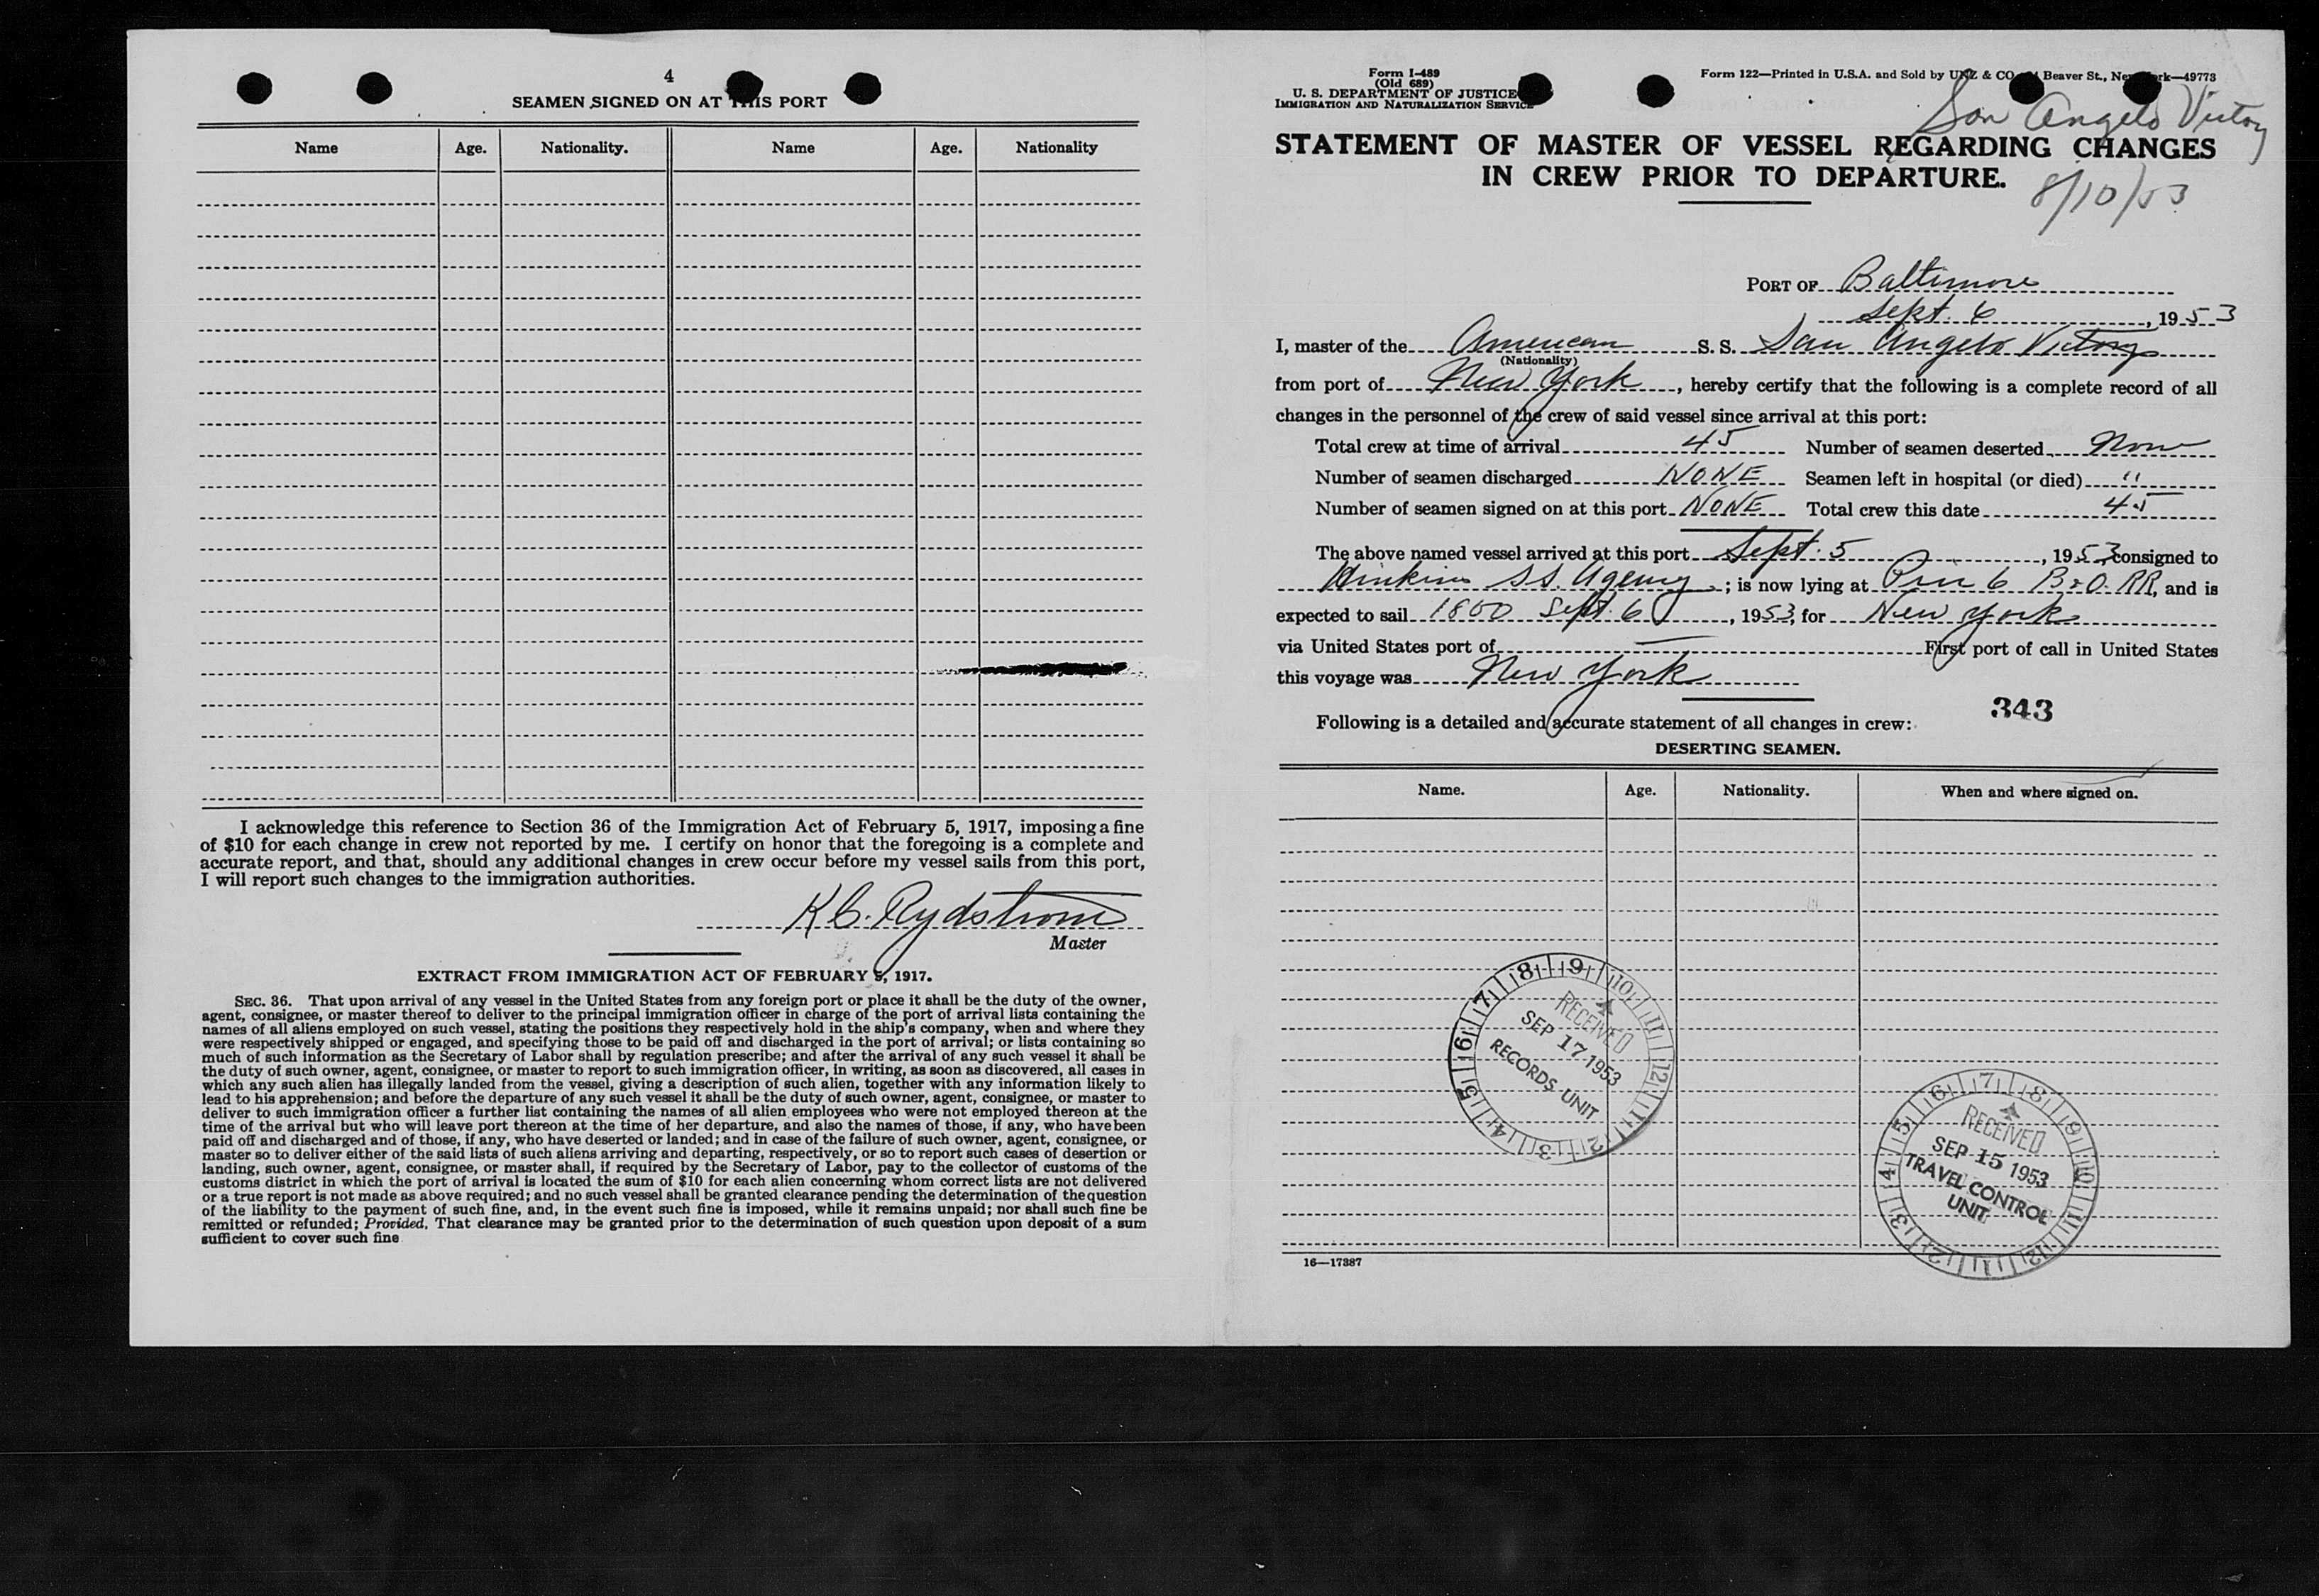 4
SEAMEN SIGNED ON AT THIS PORT
Name Age. Nationality. Name Age. Nationality
I acknowledge this reference to Section 36 of the Immigration Act of February 5, 1917, imposing a fine
of $10 for each change in crew not reported by me. I certify on honor that the foregoing is a complete and
accurate report, and that, should any additional changes in crew occur before my vessel sails from this port,
I will report such changes to the immigration authorities.
K C. Rydstrom
Master
EXTRACT FROM IMMIGRATION ACT OF FEBRUARY 5, 1917.
SEC. 36. That upon arrival of any vessel in the United States from any foreign port or place it shall be the duty of the owner,
agent, consignee, or master thereof to deliver to the principal immigration officer in charge of the port of arrival lists containing the
names of all aliens employed on such vessel, stating the positions they respectively hold in the ship's company, when and where they
were respectively shipped or engaged, and specifying those to be paid off and discharged in the port of arrival; or lists containing so
much of such information as the Secretary of Labor shall by regulation prescribe; and after the arrival of any such vessel it shall be
the duty of such owner, agent, consignee, or master to report to such immigration officer, in writing, as soon as discovered, all cases in
which any such alien has illegally landed from the vessel, giving a description of such alien, together with any information likely to
lead to his apprehension; and before the departure of any such vessel it shall be the duty of such owner, agent, consignee, or master to
deliver to such immigration officer a further list containing the names of all alien employees who were not employed thereon at the
time of the arrival but who will leave port thereon at the time of her departure, and also the names of those, if any, who have been
paid off and discharged and of those, if any, who have deserted or landed; and in case of the failure of such owner, agent, consignee, or
master so to deliver either of the said lists of such aliens arriving and departing, respectively, or so to report such cases of desertion or
landing, such owner, agent, consignee, or master shall, if required by the Secretary of Labor, pay to the collector of customs of the
customs district in which the port of arrival is located the sum of $10 for each alien concerning whom correct lists are not delivered
or a true report is not made as above required; and no such vessel shall be granted clearance pending the determination of the question
of the liability to the payment of such fine, and, in the event such fine is imposed, while it remains unpaid; nor shall such fine be
remitted or refunded; Provided, That clearance may be granted prior to the determination of such question upon deposit of a sum
sufficient to cover such fine
Form I-489
(Old 689)
U. S. DEPARTMENT OF JUSTICE
IMMIGRATION AND NATURALIZATION SERVICE
Form 122—Printed in U.S.A. and Sold by UNZ & CO. Beaver St., New York—49773
San Angelo Victory
STATEMENT OF MASTER OF VESSEL REGARDING CHANGES
IN CREW PRIOR TO DEPARTURE.
8/10/53
PORT OF Baltimore
Sept. 6, 1953
I, master of the American S. S. San Angelo Victory
(Nationality)
from port of New York, hereby certify that the following is a complete record of all
changes in the personnel of the crew of said vessel since arrival at this port:
Total crew at time of arrival 45 Number of seamen deserted None
Number of seamen discharged NONE Seamen left in hospital (or died) "
Number of seamen signed on at this port NONE Total crew this date 45
The above named vessel arrived at this port Sept. 5, 1953 consigned to
Hinkins S.S. Agency; is now lying at Pier 6 B & O. RR, and is
expected to sail 1800 Sept. 6, 1953, for New York
via United States port of — First port of call in United States
this voyage was New York
343
Following is a detailed and accurate statement of all changes in crew:
DESERTING SEAMEN.
Name. Age. Nationality. When and where signed on.
RECEIVED
SEP 17 1953
RECORDS UNIT
RECEIVED
SEP 15 1953
TRAVEL CONTROL
UNIT
16—17387